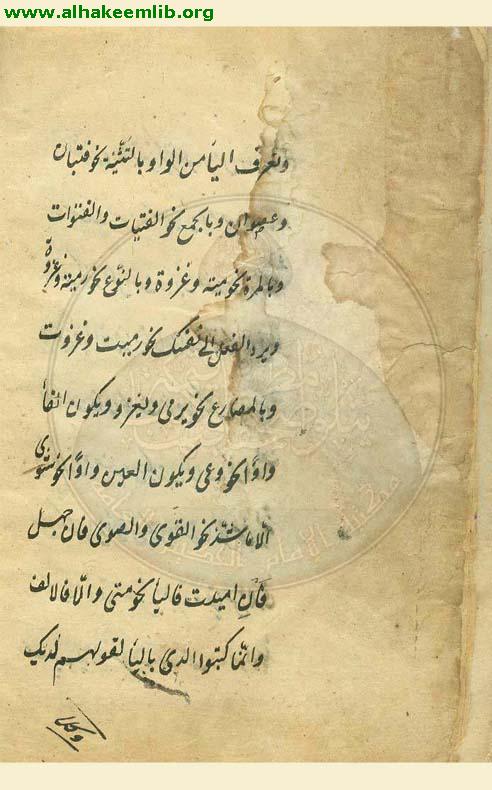 www.alhakeemlib.org
وتعرف اليا من الواو بالتثنية نحو فتيان
وعصوان وبالجمع نحو الفتيات والقنوات
وبالمرة نحو رمية وغزوة وبالنوع نحو رمية وغزوة
وبرد الفعل الى نفسك نحو رميت وغزوت
وبالمضارع نحو يرمي ويغزو وبكون الفاء
واوًا نحو وعى وبكون العين واوًا نحو شوى
الا ما شذ نحو القوى والصوى فان جهل
فان اميلت فاليا نحو متى والا فالالف
وانما كتبوا لدى باليا لقولهم لديك
وكلا